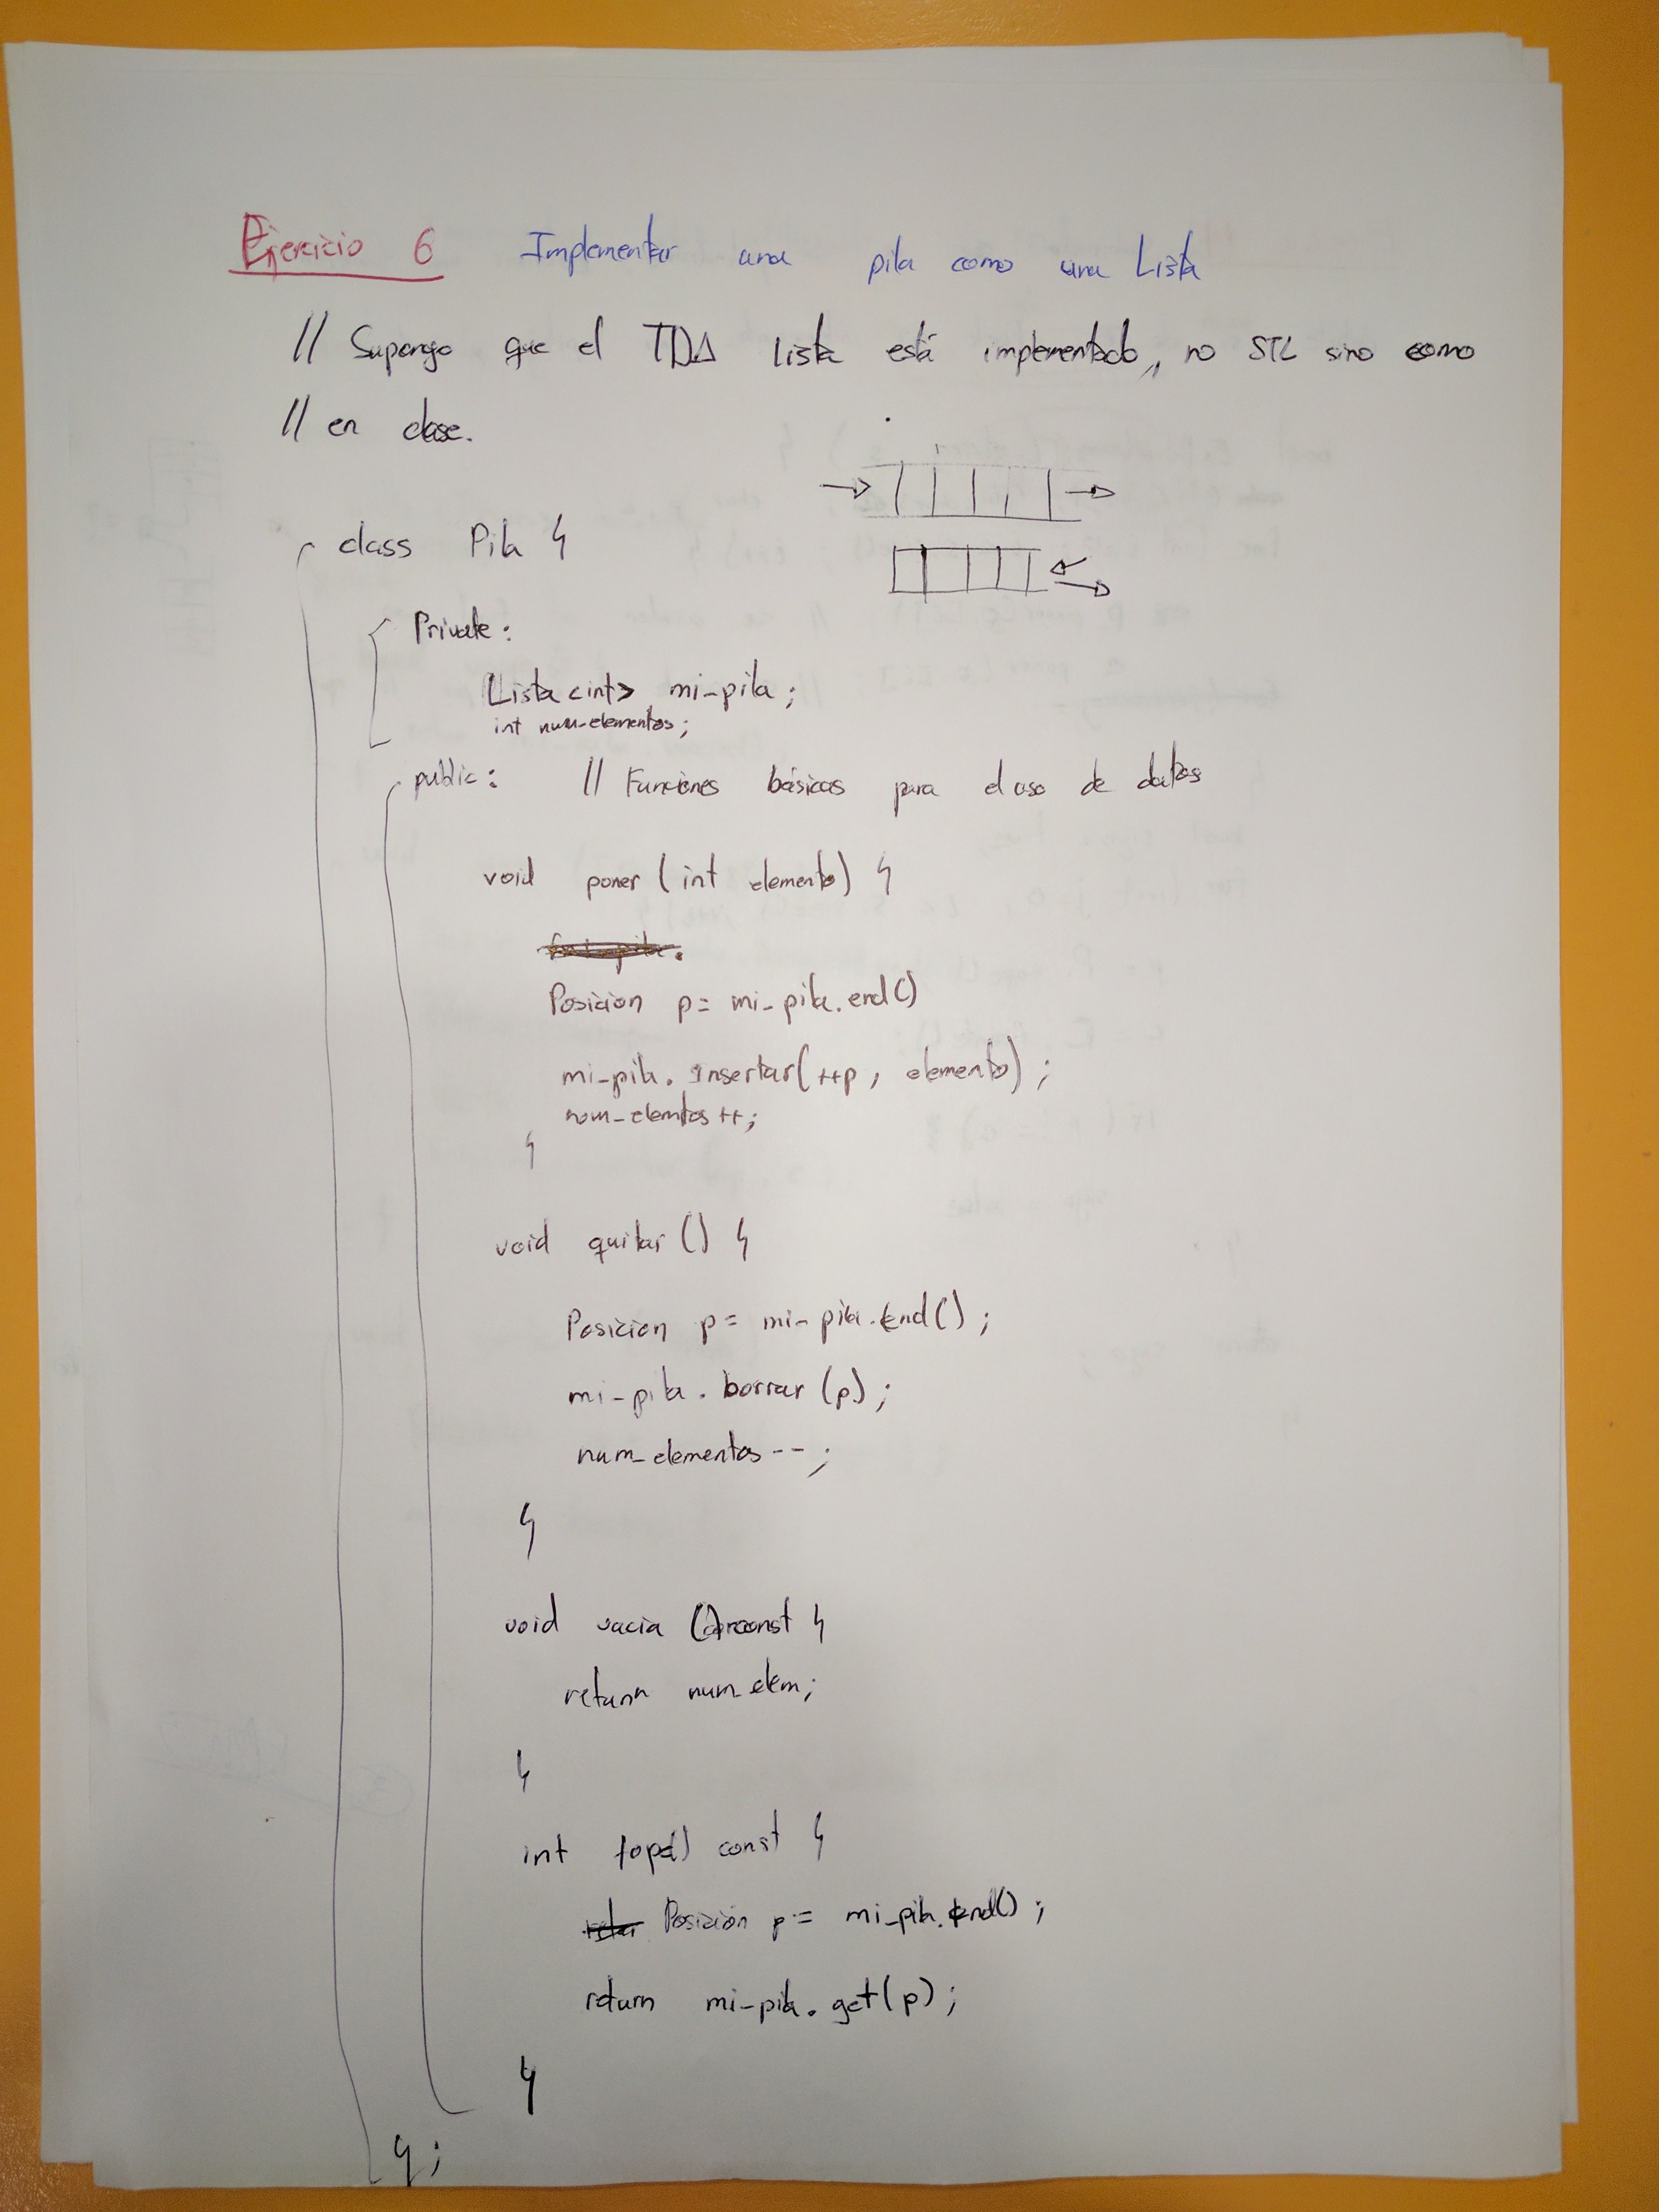 Ejercicio 6 Implementar una pila como una Lista
// Supongo que el TDA Lista está implementado, no STL sino como
// en clase.
class Pila {
Private:
Lista<int> mi-pila;
int num-elementos;
public: // Funciones básicas para el uso de datos
void poner (int elemento) {
Posicion p= mi-pila.end()
mi-pila. insertar(++p, elemento);
num-elemtos++;
}
void quitar () {
Posicion p= mi-pila.End();
mi-pila. borrar (p);
num-elementos--;
}
void vacia () const {
return num-elem;
}
int tope() const {
Posición p= mi-pila.End();
return mi-pila.get(p);
}
};